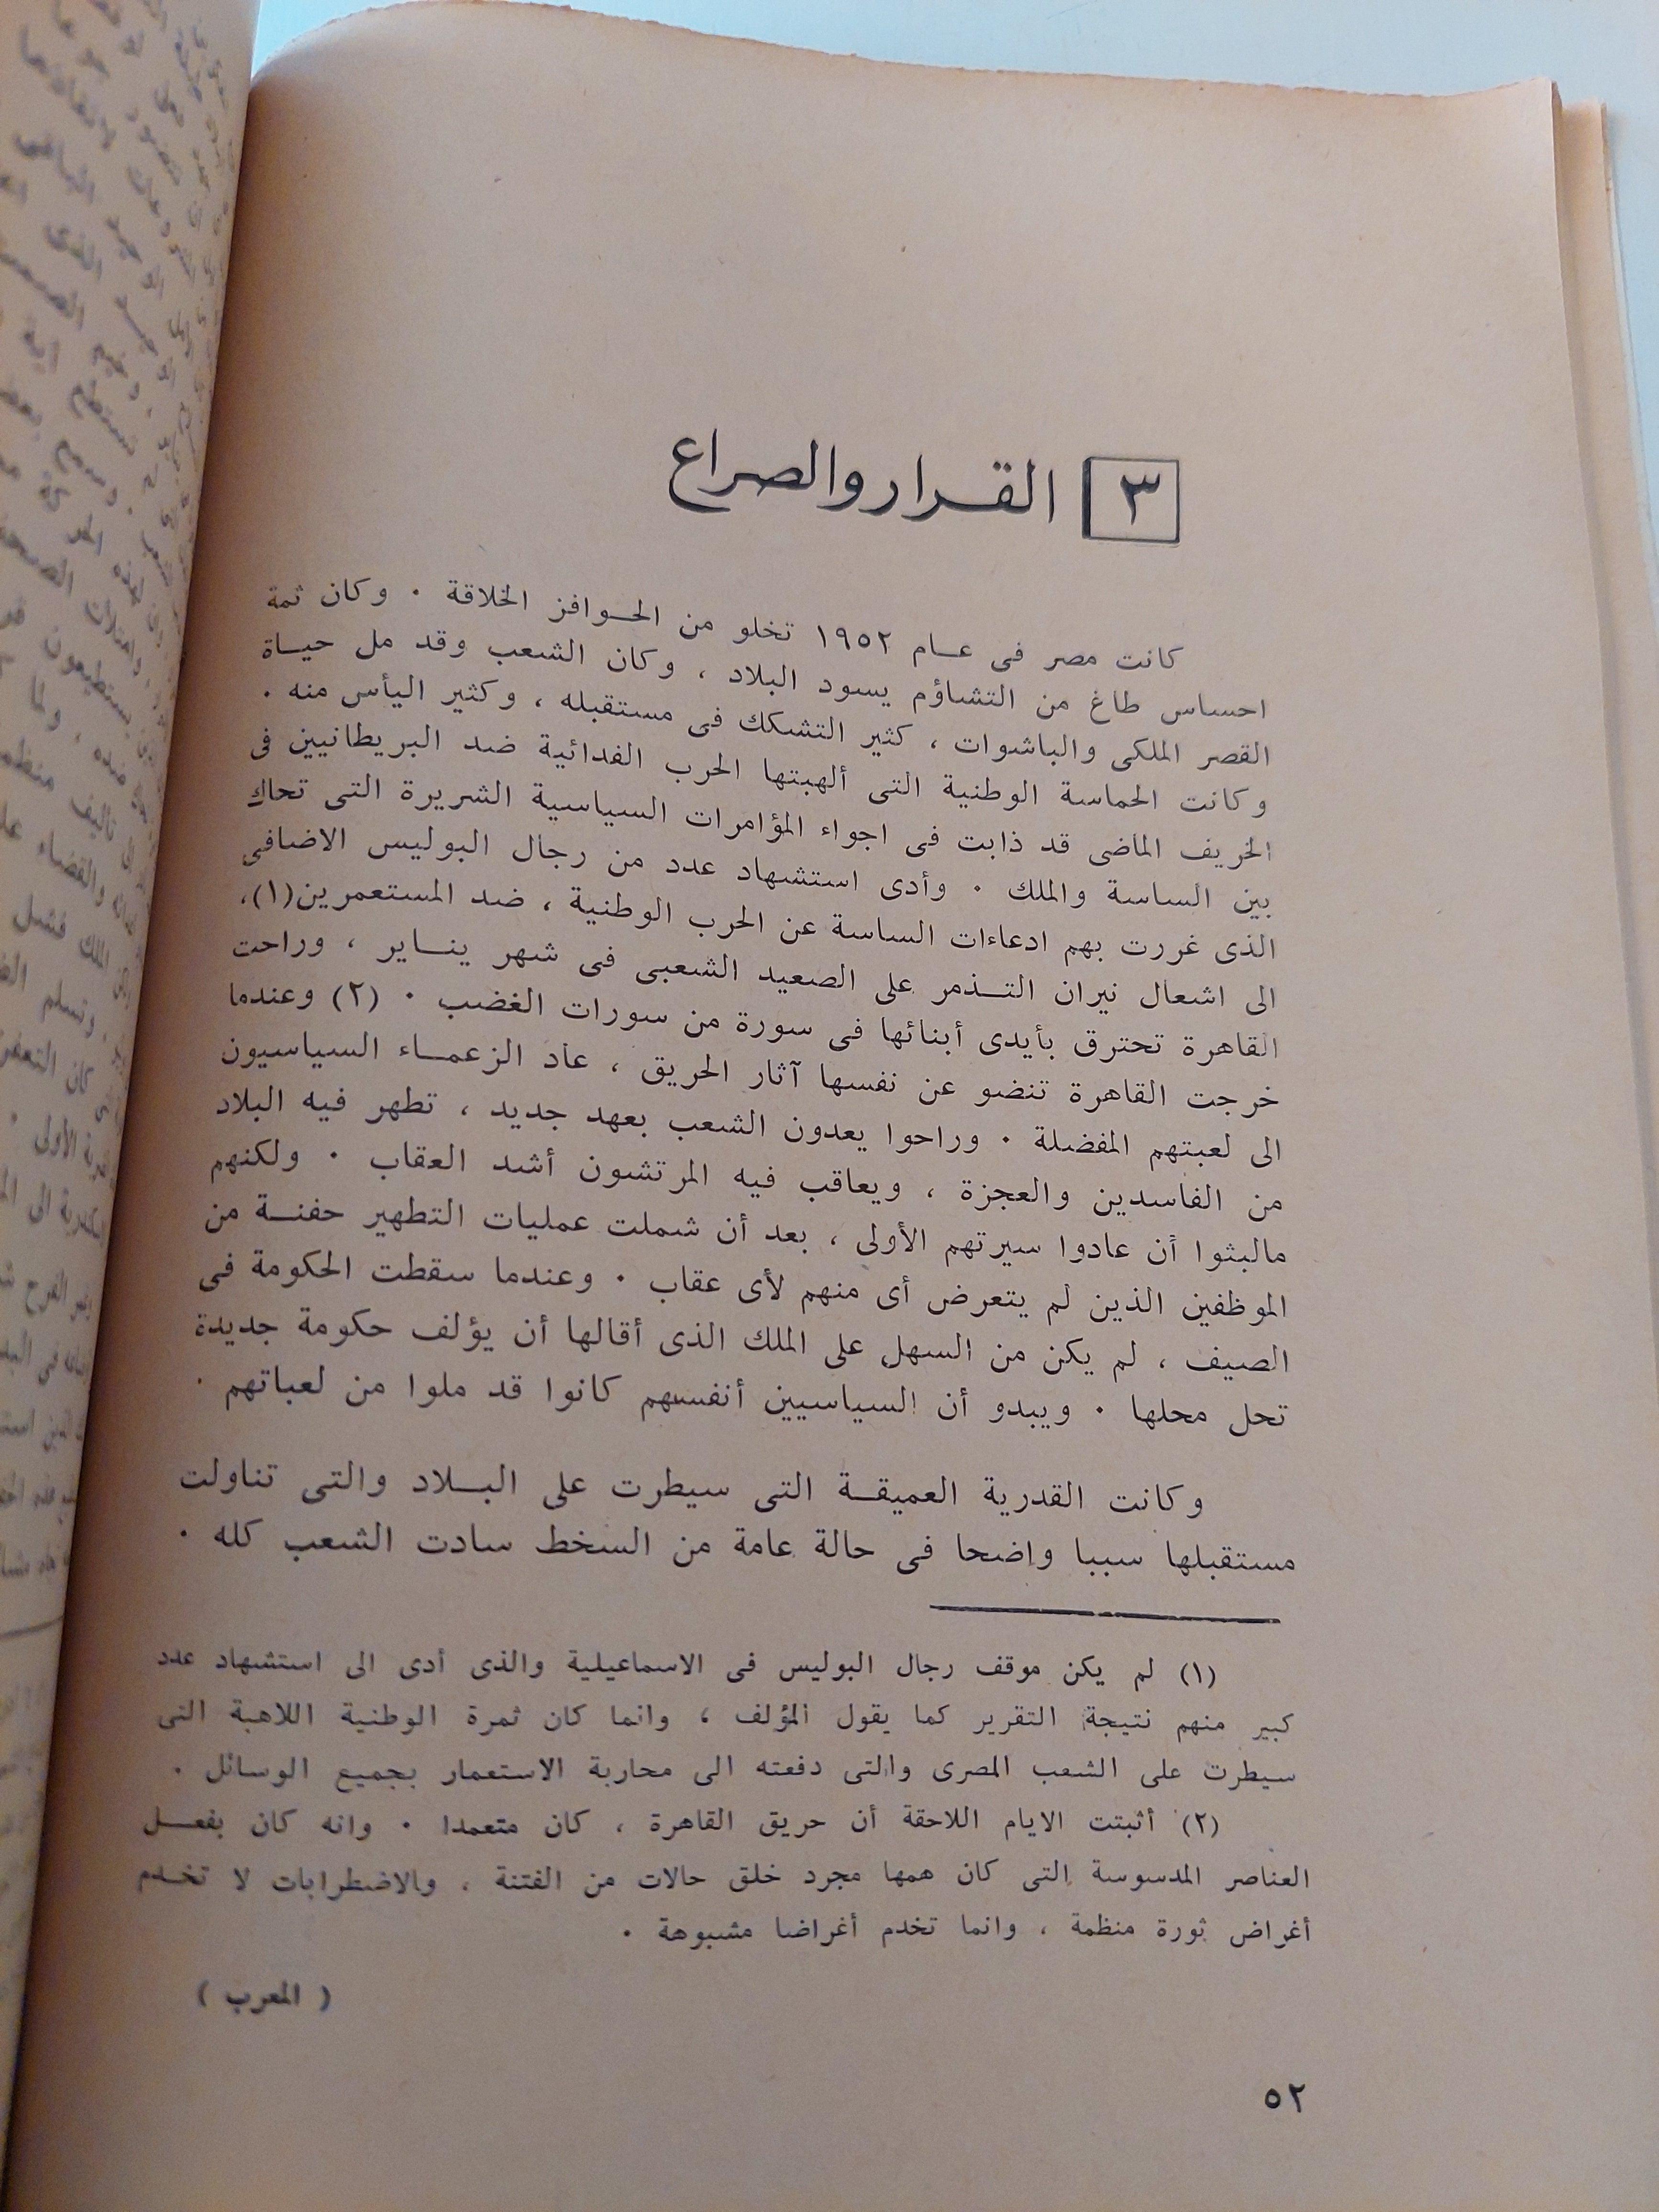 ٣ القرار والصراع
كانت مصر فى عام ١٩٥٢ تخلو من الحوافز الخلاقة . وكان ثمة
احساس طاغ من التشاؤم يسود البلاد ، وكان الشعب وقد مل حياة
القصر الملكى والباشوات ، كثير التشكك فى مستقبله ، وكثير اليأس منه .
وكانت الحماسة الوطنية التى ألهبتها الحرب الفدائية ضد البريطانيين فى
الخريف الماضى قد ذابت فى اجواء المؤامرات السياسية الشريرة التى تحاك
بين الساسة والملك . وأدى استشهاد عدد من رجال البوليس الاضافى
الذى غررت بهم ادعاءات الساسة عن الحرب الوطنية ، ضد المستعمرين(١)،
الى اشعال نيران التذمر على الصعيد الشعبى فى شهر يناير ، وراحت
القاهرة تحترق بأيدى أبنائها فى سورة من سورات الغضب . (٢) وعندما
خرجت القاهرة تنضو عن نفسها آثار الحريق ، عاد الزعماء السياسيون
الى لعبتهم المفضلة . وراحوا يعدون الشعب بعهد جديد ، تطهر فيه البلاد
من الفاسدين والعجزة ، ويعاقب فيه المرتشون أشد العقاب . ولكنهم
مالبثوا أن عادوا سيرتهم الأولى ، بعد أن شملت عمليات التطهير حفنة من
الموظفين الذين لم يتعرض أى منهم لأى عقاب . وعندما سقطت الحكومة فى
الصيف ، لم يكن من السهل على الملك الذى أقالها أن يؤلف حكومة جديدة
تحل محلها . ويبدو أن السياسيين أنفسهم كانوا قد ملوا من لعباتهم .
وكانت القدرية العميقة التى سيطرت على البلاد والتى تناولت
مستقبلها سببا واضحا فى حالة عامة من السخط سادت الشعب كله .
(١) لم يكن موقف رجال البوليس فى الاسماعيلية والذى أدى الى استشهاد عدد
كبير منهم نتيجة التقرير كما يقول المؤلف ، وانما كان ثمرة الوطنية اللاهبة التى
سيطرت على الشعب المصرى والتى دفعته الى محاربة الاستعمار بجميع الوسائل .
(٢) أثبتت الايام اللاحقة أن حريق القاهرة ، كان متعمدا . وانه كان بفعل
العناصر المدسوسة التى كان همها مجرد خلق حالات من الفتنة ، والاضطرابات لا تخدم
أغراض ثورة منظمة ، وانما تخدم أغراضا مشبوهة .
( المعرب )
٥٢